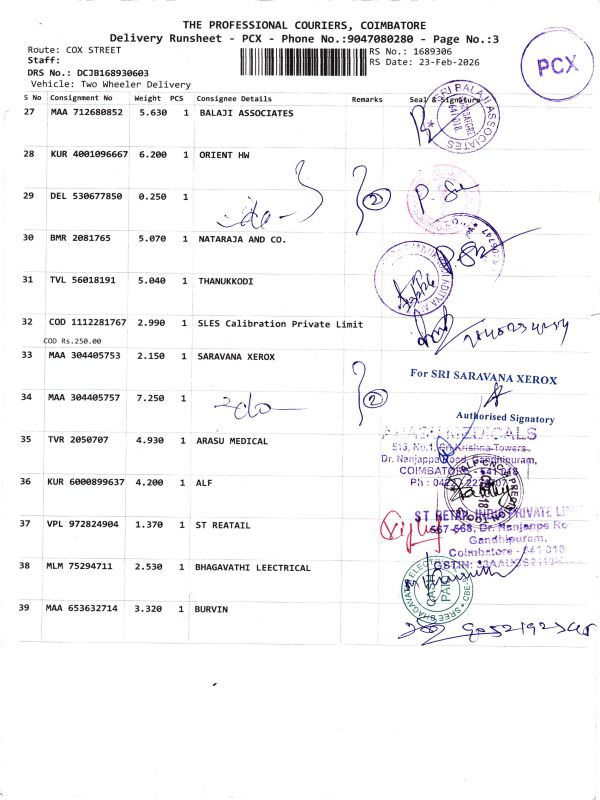 THE PROFESSIONAL COURIERS, COIMBATORE
Delivery Runsheet - PCX - Phone No.:9047080280 - Page No.:3
Route: COX STREET
RS No.: 1689306
Staff:
RS Date: 23-Feb-2026
DRS No.: DCJB168930603
Vehicle: Two Wheeler Delivery
PCX
S No Consignment No Weight PCS Consignee Details Remarks Seal & Signature
27 MAA 712680852 5.630 1 BALAJI ASSOCIATES
28 KUR 4001096667 6.200 1 ORIENT HW
29 DEL 530677850 0.250 1
2
30 BMR 2081765 5.070 1 NATARAJA AND CO.
31 TVL 56018191 5.040 1 THANUKKODI
32 COD 1112281767 2.990 1 SLES Calibration Private Limit
COD Rs.250.00
33 MAA 304405753 2.150 1 SARAVANA XEROX
For SRI SARAVANA XEROX
34 MAA 304405757 7.250 1
2
Authorised Signatory
35 TVR 2050707 4.930 1 ARASU MEDICAL
ARASU MEDICALS
515, No.1, Sri Krishna Towers,
Dr. Nanjappa Road, Gandhipuram,
COIMBATORE - 641 018
36 KUR 6000899637 4.200 1 ALF
37 VPL 972824904 1.370 1 ST REATAIL
ST RETAIL INDIA PRIVATE
567-568, Dr. Nanjappa Ro
Gandhipuram,
Coimbatore - 641 018
38 MLM 75294711 2.530 1 BHAGAVATHI LEECTRICAL
CASH PAID
39 MAA 653632714 3.320 1 BURVIN